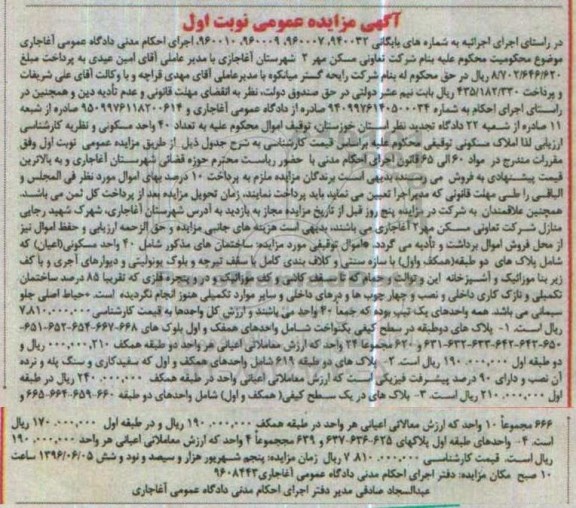 آگهی مزایده عمومی نوبت اول
در راستای اجرای اجرائیه به شماره های بایگانی ۹۴۰۰۳۲، ۹۶۰۰۰۷، ۹۶۰۰۰۹، ۹۶۰۰۱۰، اجرای احکام مدنی دادگاه عمومی آغاجاری
موضوع محکومیت محکوم علیه بنام شرکت تعاونی مسکن مهر ۲ شهرستان آغاجاری با مدیر عاملی آقای امین عیدی به پرداخت مبلغ
۸/۷۰۲/۶۴۶/۶۲۰ ریال در حق محکوم له بنام شرکت رایحه گستر میانکوه با مدیرعاملی آقای مهدی قراچه و با وکالت آقای علی شریفات
و پرداخت ۴۳۵/۱۸۲/۳۳۰ ریال بابت نیم عشر دولتی در حق صندوق دولت، نظر به انقضای مهلت قانونی و عدم تأدیه دین و همچنین در
راستـای اجرای احکام به شماره ۹۴۰۹۹۷۶۱۴۰۵۰۰۰۳۴ صادره از دادگاه عمومی آغاجاری و ۹۵۰۹۹۷۶۱۱۸۲۰۰۶۱۴ صادره از شعبه
۱۱ صادره از شـعبه ۲۲ دادگاه تجدید نظر اسـتان خوزستان، توقیف اموال محکوم علیه به تعداد ۴۰ واحد مسکونی و نظریه کارشناسی
ارزیابی لذا املاک مسکونی توقیفی محکوم علیه براساس قیمت کارشناسی به شرح جدول ذیل از طریق مزایده عمومی نوبت اول وفق
مقررات مندرج در مواد ۶۰ الی ۶۵ قانون اجرای احکام مدنی با حضور ریاست محترم حوزه قضائی شهرسـتان آغاجاری و به بالاترین
قیمت پیشـنهادی به فروش می رسـد، بدیهی است برندگان مزایده ملزم به پرداخت ۱۰ درصد بهای اموال مورد نظر فی المجلس و
الباقـی را طـی مهلت قانونی که مدیراجرا تعیین می نماید باید پرداخت نمایند، زمان تحویل مزایده بعد از پرداخت کل ثمن می باشـد.
همچنین علاقمندان به شرکت در مزایده پنج روز قبل از تاریخ مزایده مجاز به بازدید به آدرس شهرستان آغاجاری، شهرک شهید رجایی
منازل شـرکت تعاونی مسکن مهر۲ آغاجاری می باشند، بدیهی اسـت هزینه های جانبی مزایده و حق الزحمه ارزیابی و حفظ اموال نیز
از محل فروش اموال برداشت و تأدیه می گردد. *اموال توقیفی مورد مزایده: ساختمان های مذکور شامل ۴۰ واحد مسکونی(اعیان) که
شامل پلاک های دو طبقه(همکف واول) با سازه سنتی و کلاف بندی کامل با سقف تیرچه و بلوک یونولیتی و دیوارهای آجری و با کف
زیر بنا موزائیک و آشـپزخانه این و توالت و حمام که تا سـقف کاشی و کف موزائیک و در و پنجره فلزی که تقریبا ۸۵ درصد ساختمان
تکمیلی و نازک کاری داخلی و نصب و چهار چوب ها و درهای داخلی و سایر موارد تکمیلی هنوز انجام نگردیده است. *حیاط اصلی جلو
سیمانی می باشد. همه واحدهای یک تیپ بوده که جمعا ۴۰ واحد می باشند و ارزش کل واحدها به قیمت کارشناسی ۷.۸۱۰.۰۰۰.۰۰۰
ریال اسـت. ۱- پلاک های دوطبقه در سطح کیفی یکنواخت شـامل واحدهای همکف و اول بلوک های ۶۶۸-۶۶۷-۶۵۴-۶۵۲-۶۵۱-
۶۵۰-۶۴۳-۶۴۲-۶۳۳-۶۳۲-۶۳۱ و ۶۲۰ مجموعا ۲۴ واحد که ارزش معاملاتی اعیانی هر واحد دو طبقه همکف ۲۱۰,۰۰۰,۰۰۰ ریال و
دو طبقه اول ۱۹۰,۰۰۰,۰۰۰ ریال است. ۲- پلاک های دو طبقه ۶۱۹ شامل واحدهای همکف و اول که سفیدکاری و سنگ پله و نرده
آن نصب و دارای ۹۰ درصد پیشـرفت فیزیکـی اسـت که ارزش معاملاتی اعیانی واحد در طبقه همکف ۲۴۰,۰۰۰,۰۰۰ ریال در طبقه
اول ۲۱۰,۰۰۰,۰۰۰ ریال است. ۳- پلاک های در یک سطح کیفی( همکف و اول) شامل واحدهای دو طبقه ۶۶۰-۶۵۹-۶۶۴-۶۶۵ و
۶۶۶ مجموعاً ۱۰ واحد که ارزش معالاتی اعیانی هر واحد در طبقه همکف ۱۹۰,۰۰۰,۰۰۰ ریال و در طبقه اول ۱۷۰,۰۰۰,۰۰۰ ریال
است. ۴- واحدهای طبقه اول پلاکهای ۶۲۵-۶۳۶-۶۳۷ و ۶۳۹ مجموعاً ۴ واحد که ارزش معاملاتی اعیانی هر واحد ۱۹۰,۰۰۰,۰۰۰
ریال اسـت. قیمت کارشناسی ۷,۸۱۰,۰۰۰,۰۰۰ ریال زمان مزایده: پنجم شـهریور هزار و سیصد و نود و شش ۱۳۹۶/۰۶/۰۵ ساعت
۱۰ صبح مکان مزایده: دفتر اجرای احکام مدنی دادگاه عمومی آغاجاری۹۶۰۸۴۴۳
عبدالسجاد صادقی مدیر دفتر اجرای احکام مدنی دادگاه عمومی آغاجاری